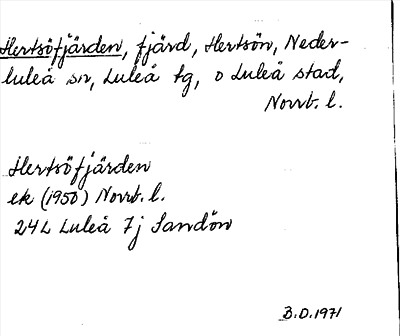 Hertsöfjärden, fjärd, Hertsön, Neder-
luleå sn, Luleå tg, o Luleå stad,
Norrb. l.
Hertsöfjärden
ek (1950) Norrb. l.
24L Luleå 7j Sandön
B.D. 1971